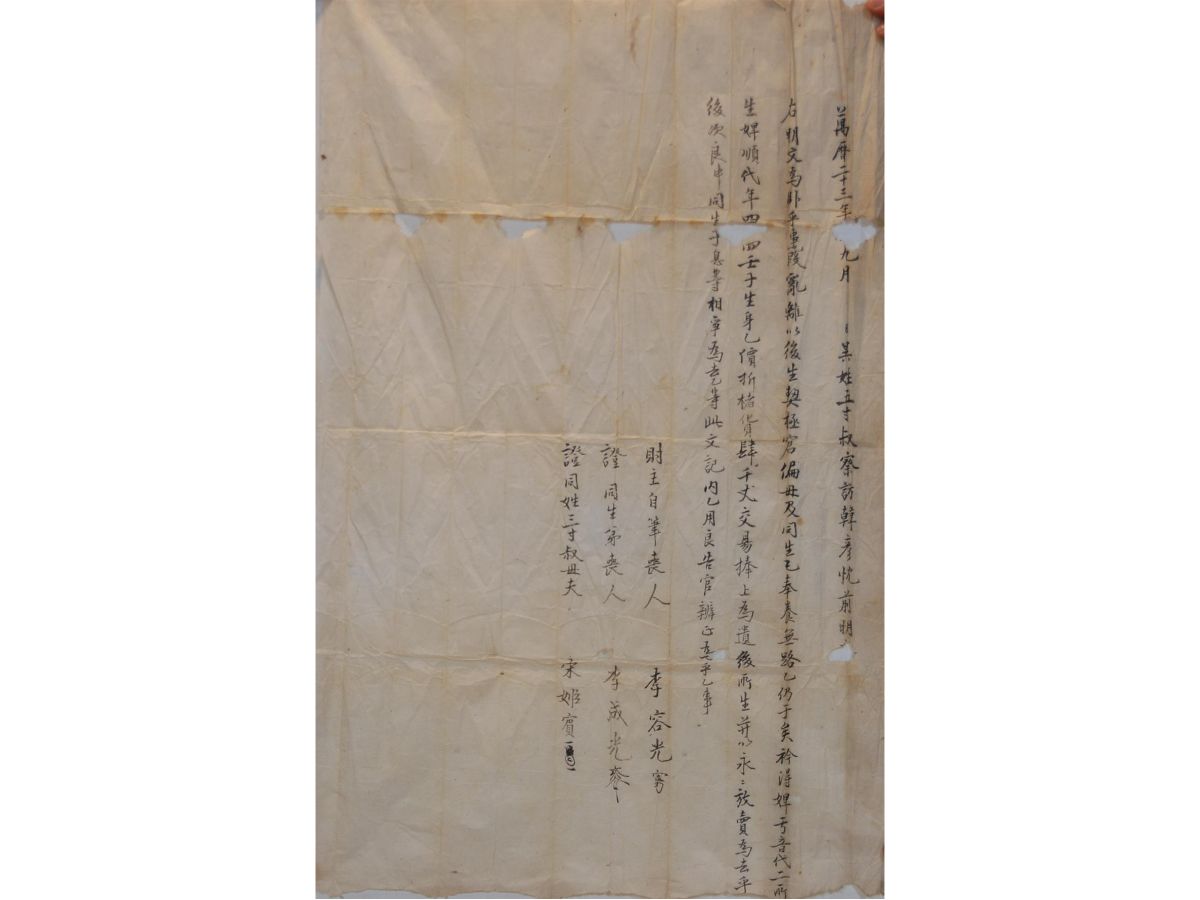 萬曆二十三年 九月 日異姓五寸叔察訪韓彦忱前明
右明文爲臥乎事段 離以後生契極窘偏母及同生乙奉養無路乙仍于矣衿得婢 音代二所
生婢順代年四 四壬子生身乙價折楮貨肆千丈交易捧上爲遣後所生并以永永放賣爲去乎
後次良中同生子息等相爭爲去乙等此文記內乙用良告官辨正爲乎乙事
財主自筆喪人 李容光
證同生弟喪人 李成光
證同姓三寸叔母夫 宋姬賓